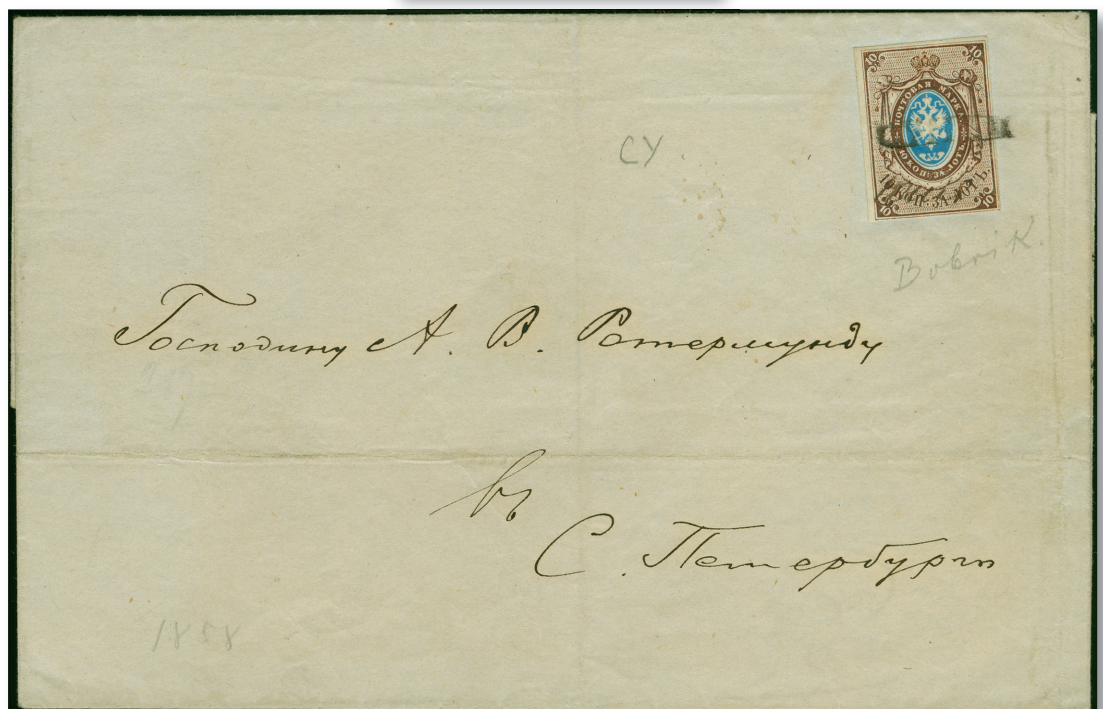 10 10
ПОЧТОВАЯ МАРКА
10 КОП: ЗА ЛОТЪ
10 КОП: ЗА ЛОТЪ.
10 10
СУ
Bobrik.
Господину А. В. Ротермунду
въ
С. Петербургъ
1858